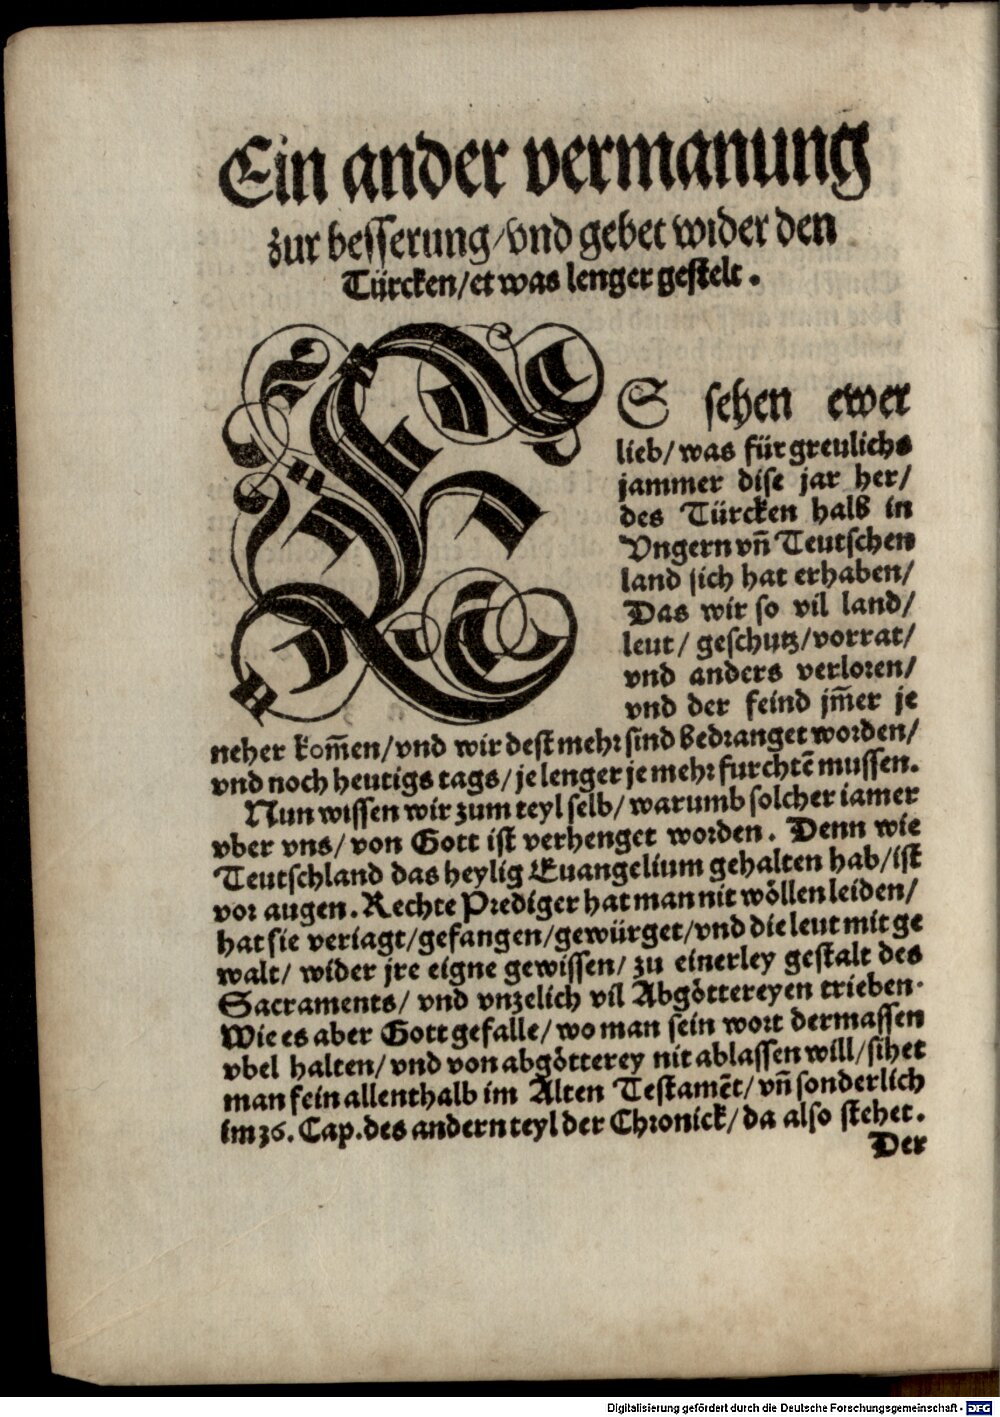 Ein ander vermanung
zur besserung/vnd gebet wider den
Türcken/etwas lenger gestelt.
ES sehen ewer
lieb/ was für greulichs
jammer dise jar her/
des Türcken halb in
Vngern vñ Teutschen
land sich hat erhaben/
Das wir so vil land/
leut/ geschutz/vorrat/
vnd anders verloren/
vnd der feind jm̃er je
neher kom̃en/vnd wir dest mehr sind bedranget worden/
vnd noch heutigs tags/ je lenger je mehr furchtē mussen.
Nun wissen wir zum teyl selb/ warumb solcher iamer
vber vns/ von Gott ist verhenget worden. Denn wie
Teutschland das heylig Euangelium gehalten hab/ist
vor augen. Rechte Prediger hat man nit wöllen leiden/
hat sie veriagt/gefangen/gewürget/vnd die leut mit ge
walt/ wider jre eigne gewissen/ zu einerley gestalt des
Sacraments/ vnd vnzelich vil Abgöttereyen trieben.
Wie es aber Gott gefalle/ wo man sein wort dermassen
vbel halten/ vnd von abgötterey nit ablassen will/ sihet
man fein allenthalb im Alten Testamēt/ vñ sonderlich
im 36. Cap. des andern teyl der Chronick/ da also stehet.
Der
Digitalisierung gefördert durch die Deutsche Forschungsgemeinschaft - DFG